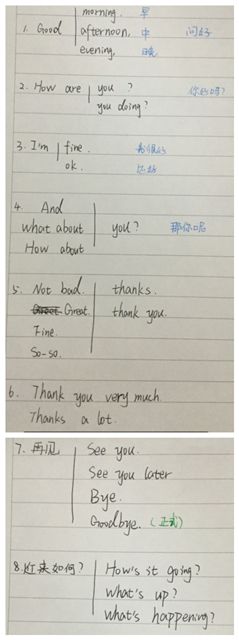 morning. 早
1. Good afternoon, 中 问好
evening, 晚
2. How are you ? 你好吗?
you doing?
3. I'm fine. 我很好
ok. 还好
4. And
what about you? 那你呢
How about
5. Not bad. thanks.
Great. thank you.
Fine.
So-so.
6. Thank you very much.
Thanks a lot.
7. 再见 See you.
See you later
Bye.
Goodbye. (正式)
8. 近来如何? How's it going?
what's up?
what's happening?